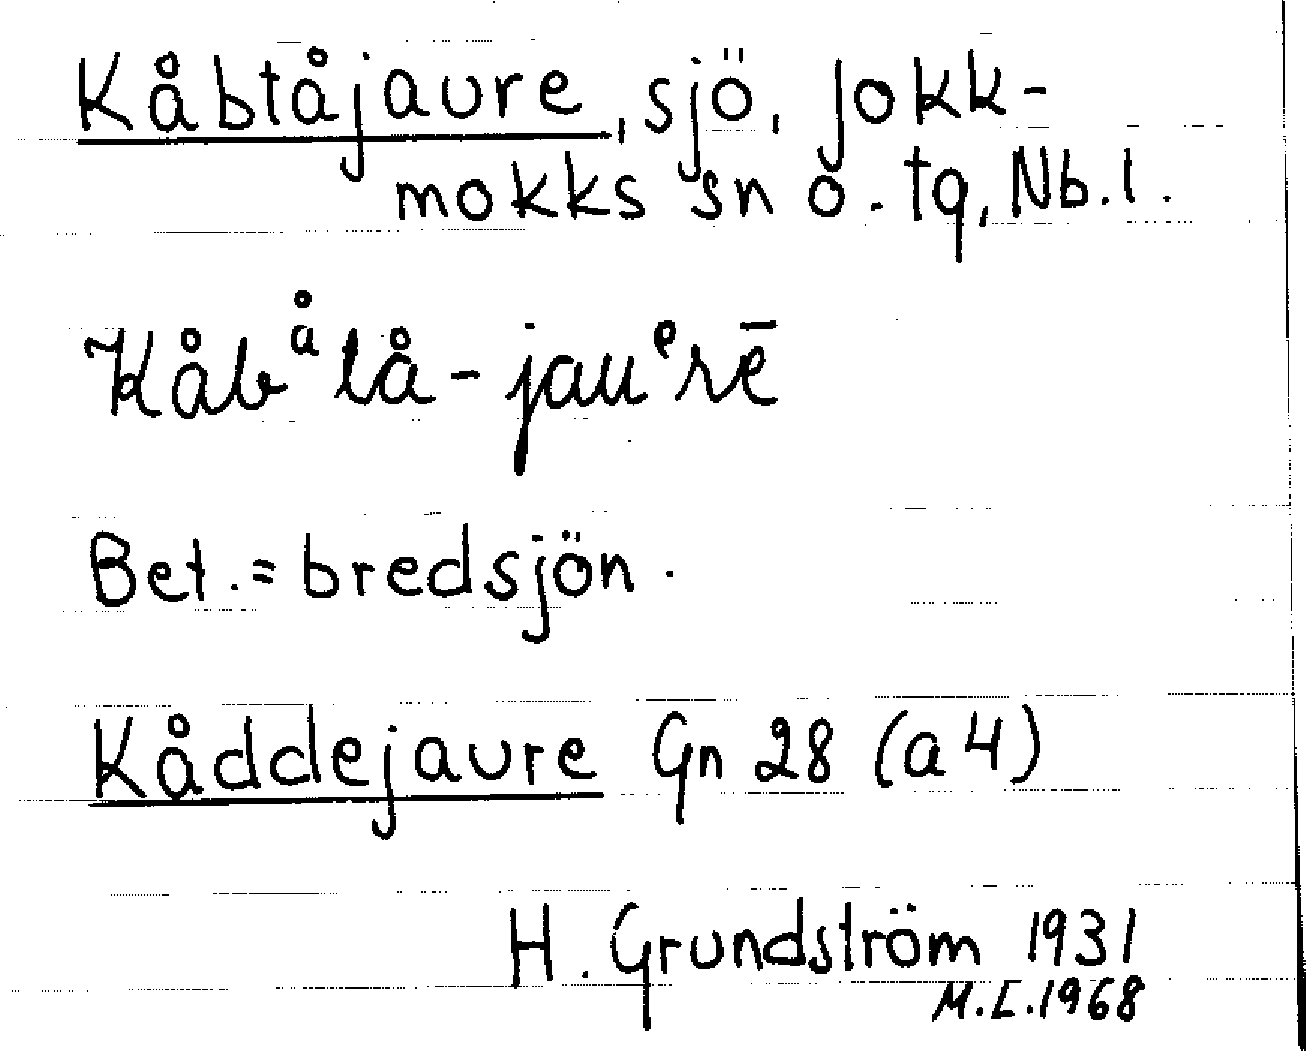 Kåbtåjaure, sjö, Jokk-
mokks sn o. tg, Nb.l.
Kåbåtå-jauᵉrē
Bet.= bredsjön.
Kåddejaure Gn 28 (a4)
H. Grundström 1931
M.L.1968